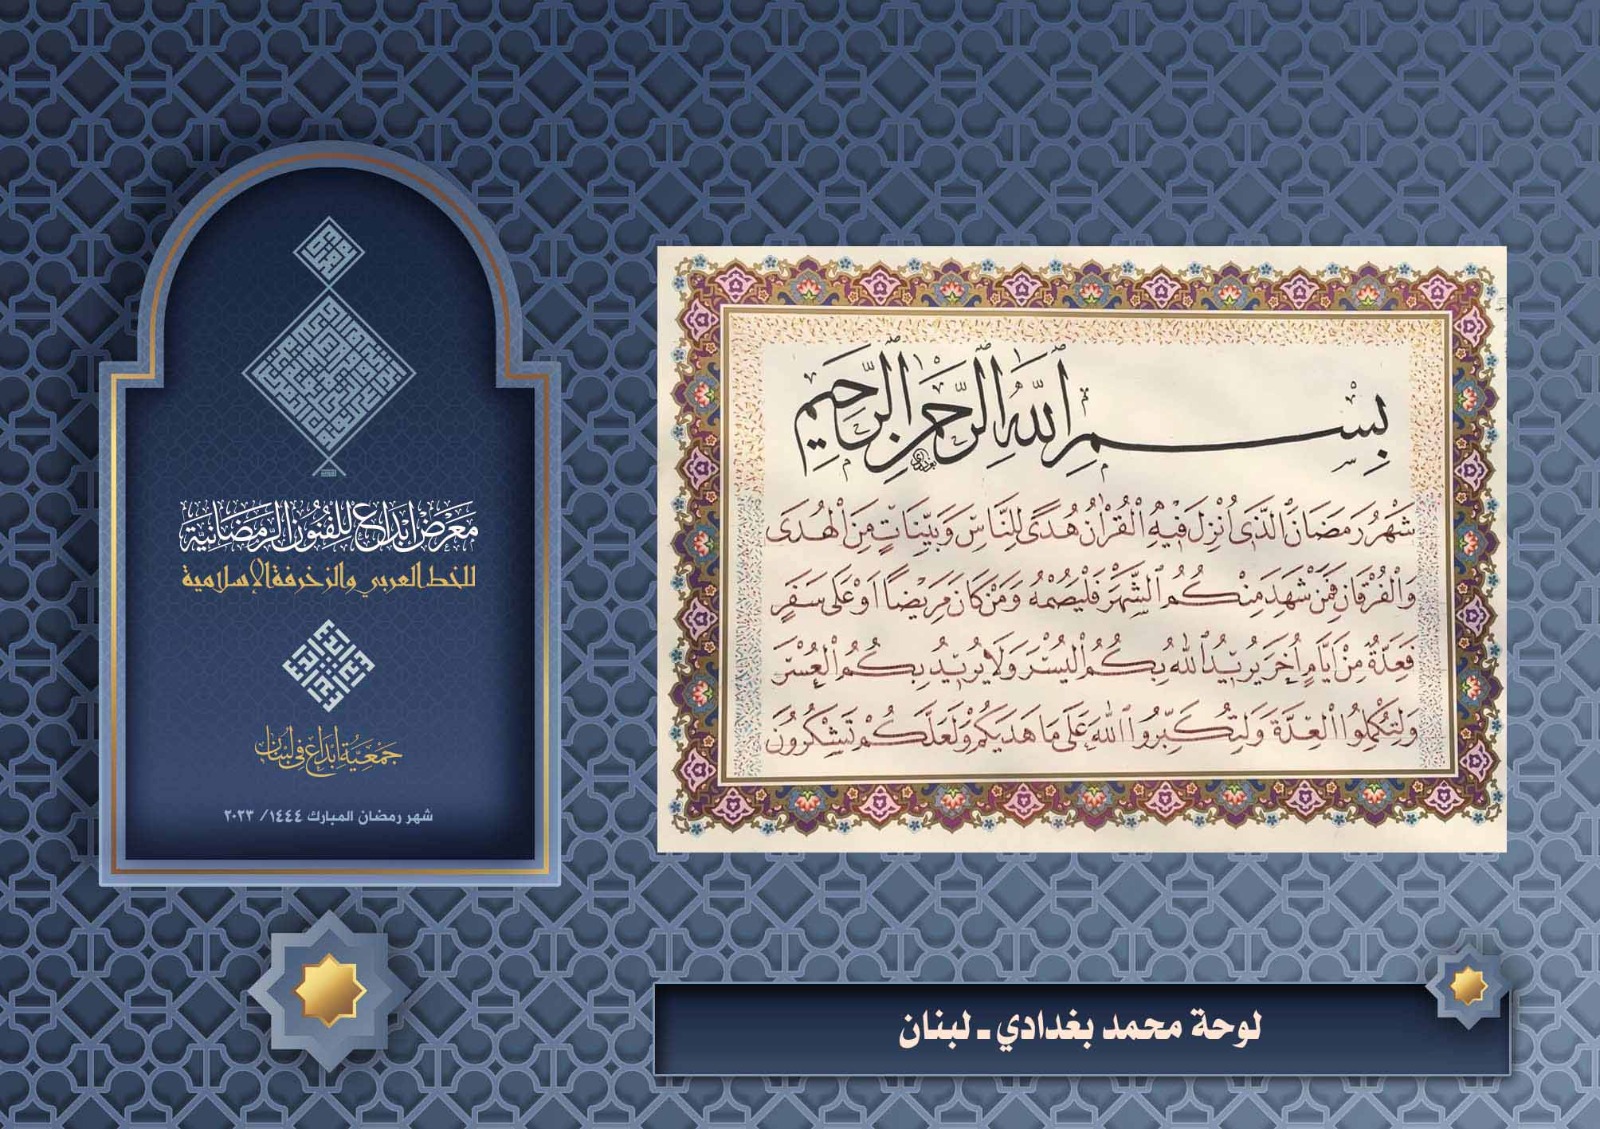 معرض إبداع للفنون الرمضانية
للخط العربي والزخرفة الإسلامية
جمعية إبداع في لبنان
شهر رمضان المبارك ١٤٤٤/ ٢٠٢٣
بِسْمِ اللَّهِ الرَّحْمَنِ الرَّحِيمِ
شَهْرُ رَمَضَانَ الَّذِي أُنْزِلَ فِيهِ الْقُرْآنُ هُدًى لِلنَّاسِ وَبَيِّنَاتٍ مِنَ الْهُدَى
وَالْفُرْقَانِ فَمَنْ شَهِدَ مِنْكُمُ الشَّهْرَ فَلْيَصُمْهُ وَمَنْ كَانَ مَرِيضًا أَوْ عَلَى سَفَرٍ
فَعِدَّةٌ مِنْ أَيَّامٍ أُخَرَ يُرِيدُ اللَّهُ بِكُمُ الْيُسْرَ وَلَا يُرِيدُ بِكُمُ الْعُسْرَ
وَلِتُكْمِلُوا الْعِدَّةَ وَلِتُكَبِّرُوا اللَّهَ عَلَى مَا هَدَيكُمْ وَلَعَلَّكُمْ تَشْكُرُونَ
لوحة محمد بغدادي ـ لبنان